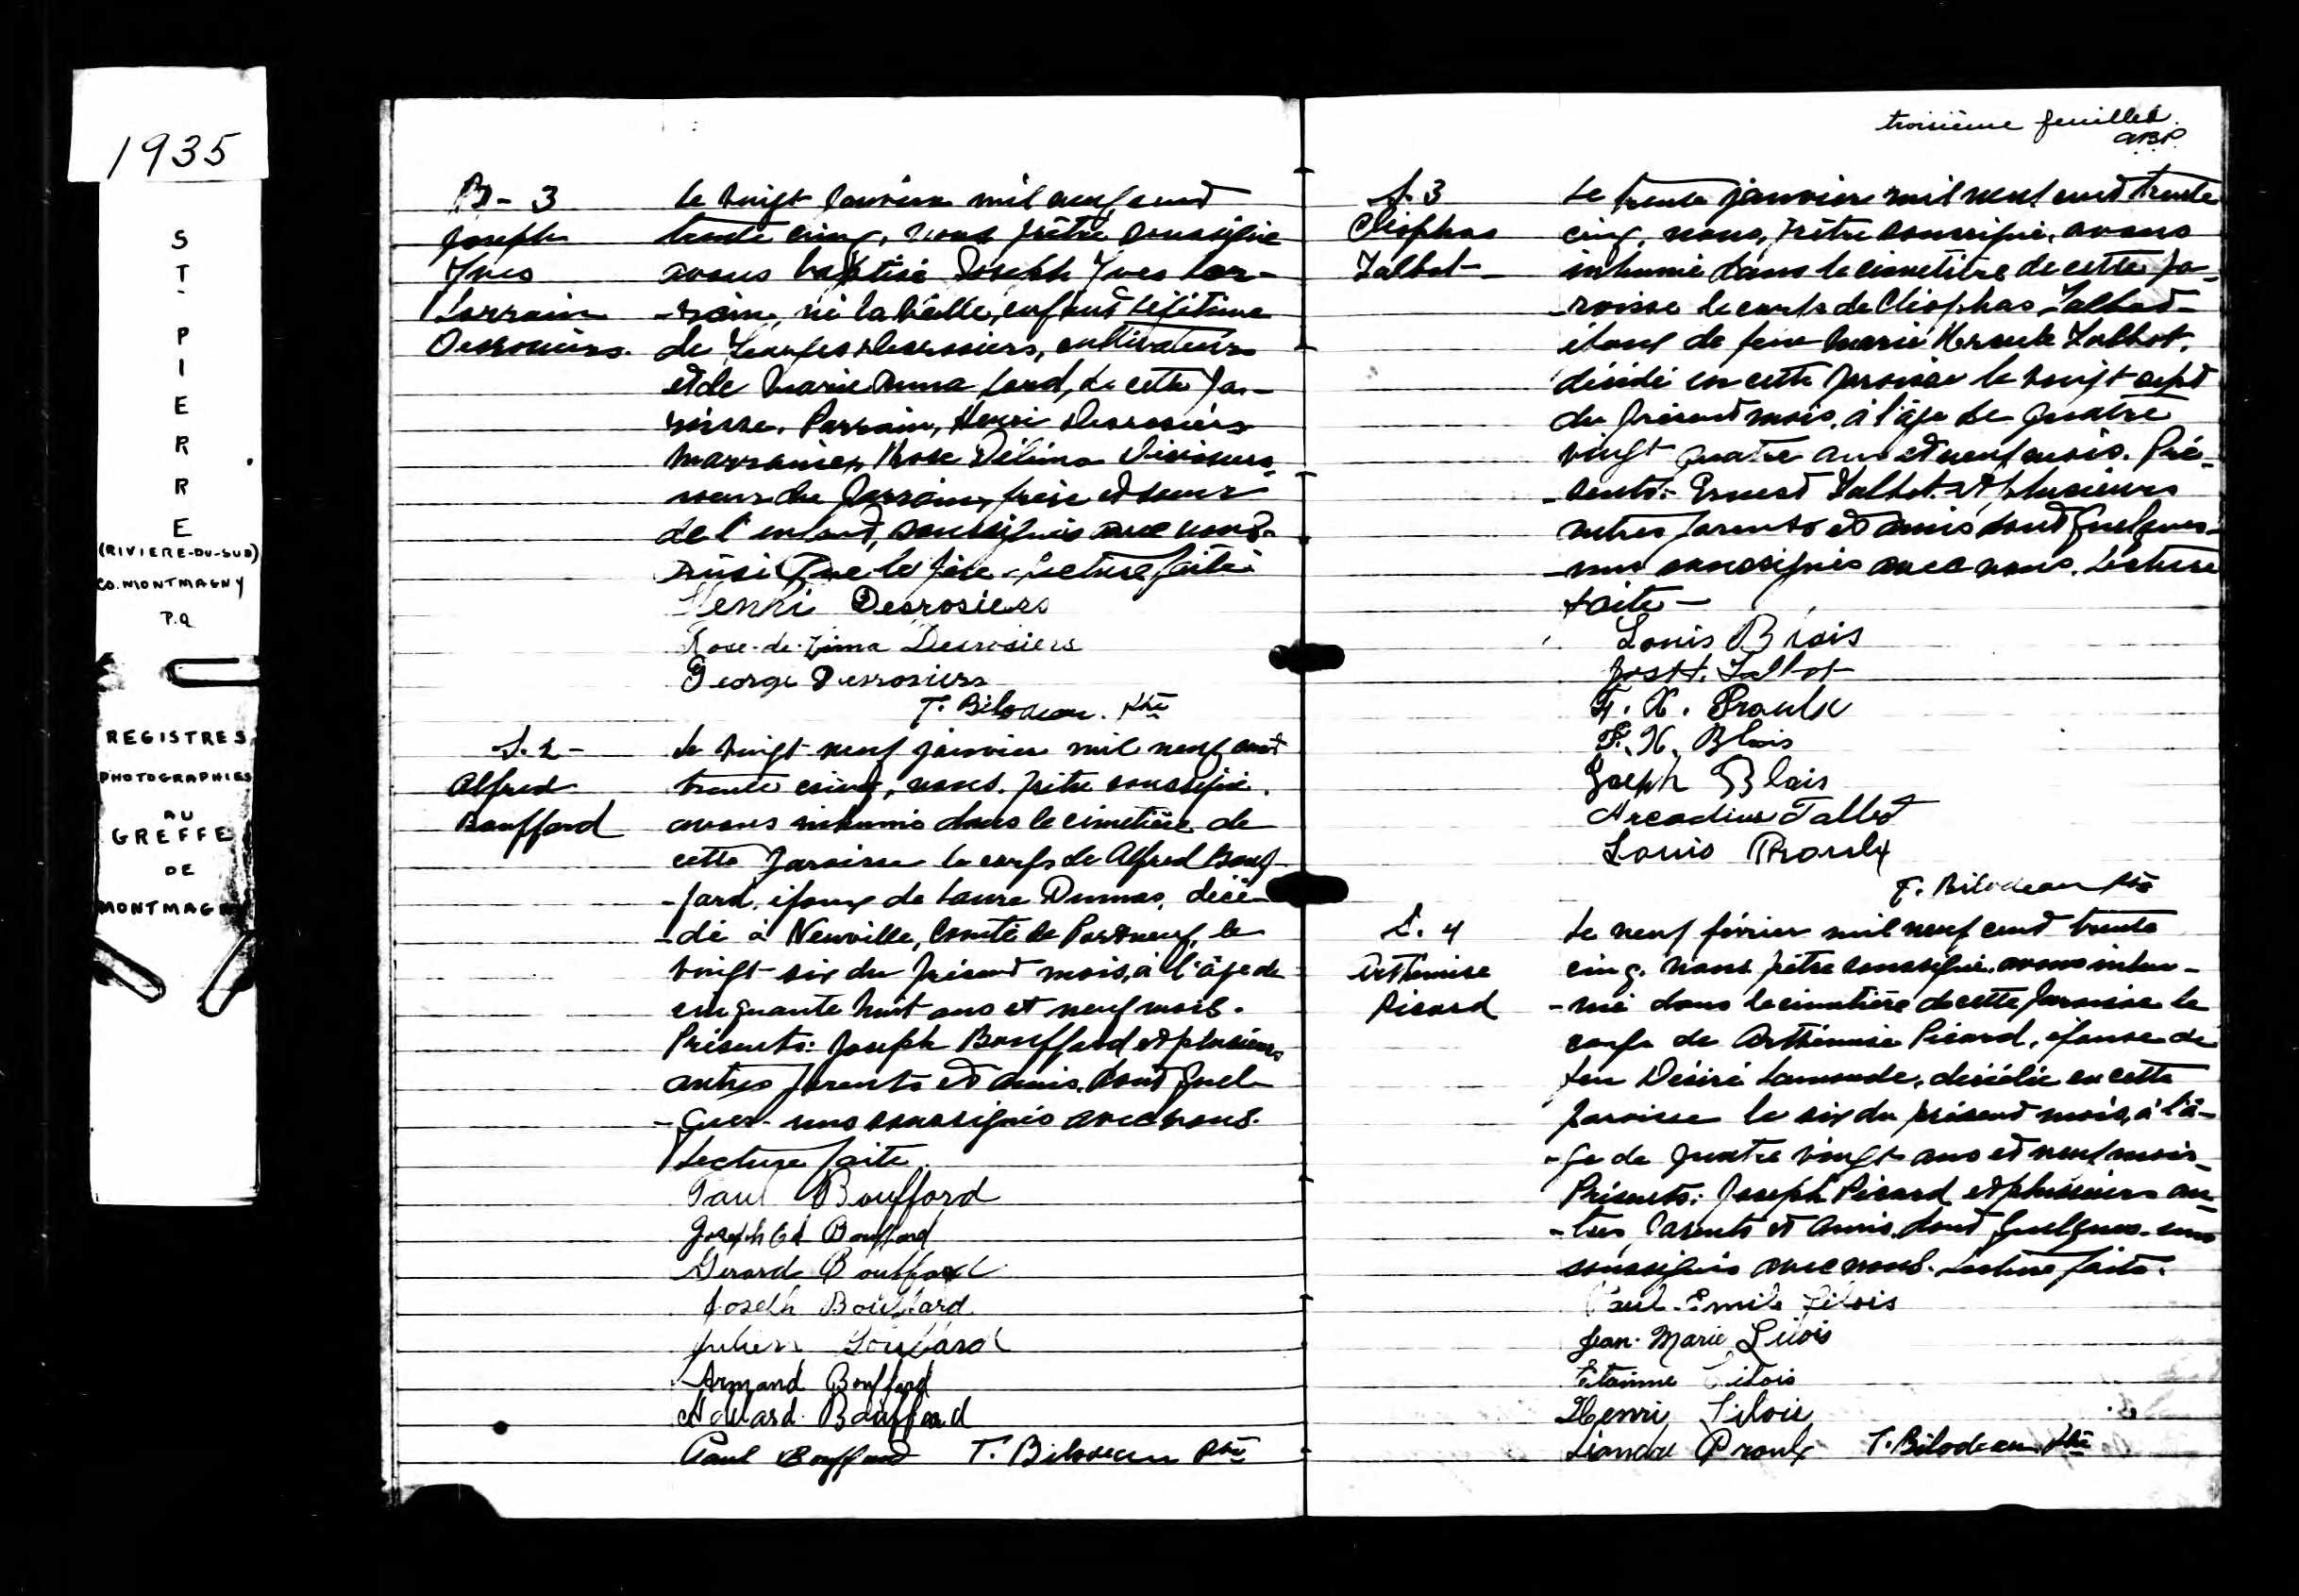 1935
ST-PIERRE
(RIVIERE-DU-SUD)
CO. MONTMAGNY
P.Q
REGISTRES
PHOTOGRAPHIES
AU
GREFFE
DE
MONTMAGNY
B-3
Joseph
Yves
Lorrain
Desrosiers.
le vingt janvier mil neuf cent
trente cinq, nous prêtre soussigné
avons baptisé Joseph Yves Lor-
-rain, né la veille, enfant légitime
de Georges Desrosiers, cultivateur
et de Marie Anna, de cette pa-
roisse. Parrain, Henri Desrosiers
marraine, Rose Délima Desrosiers,
soeur du parrain, frère et soeur
de l'enfant, soussignés avec nous
ainsi que le père. Lecture faite.
Henri Desrosiers
Rose-de-Lima Desrosiers
George Desrosiers
T. Bilodeau. ptre
S.2-
Alfred
Bouffard
le vingt-neuf janvier mil neuf cent
trente cinq, nous, prêtre soussigné,
avons inhumé dans le cimetière de
cette paroisse le corps de Alfred Bouf-
-fard, époux de Laure Dumas, décé-
-dé à Neuville, Comté de Portneuf, le
vingt-six du présent mois, à l'âge de
cinquante huit ans et neuf mois.
Présents: Joseph Bouffard et plusieurs
autres parents et amis, dont quel-
-ques-uns soussignés avec nous.
Lecture faite.
Paul Bouffard
Joseph Ed Bouffard
Gerard Bouffard
Joseph Bouffard
Julien Bouffard
Armand Bouffard
Bouffard
Paul Bouffard T. Bilodeau ptre
troisième feuillet
A.B.P.
S.3
Cléophas
Talbot-
Le trente janvier mil neuf cent trente
cinq, nous, prêtre soussigné, avons
inhumé dans le cimetière de cette pa-
-roisse le corps de Cléophas Talbot
époux de feue Marie Talbot,
décédé en cette paroisse le vingt-sept
du présent mois, à l'âge de quatre
vingt quatre ans et neuf mois. Pré-
-sents: Ernest Talbot et plusieurs
autres parents et amis dont quelques-
-uns soussignés avec nous. Lecture
faite-
Louis Blais
Jos H. Talbot
F. X. Proulx
F. X. Blais
Joseph Blais
Arcadius Talbot
Louis Proulx
T. Bilodeau ptre
S. 4
Arthémise
Picard
Le neuf février mil neuf cent trente
cinq, nous prêtre soussigné, avons inhu-
-mé dans le cimetière de cette paroisse le
corps de Arthémise Picard, épouse de
feu Désiré Lamonde, décédée en cette
paroisse le six du présent mois, à l'â-
-ge de quatre vingt ans et neuf mois.
Présents: Joseph Picard et plusieurs au-
-tres parents et amis, dont quelques-uns
soussignés avec nous. Lecture faite.
Paul-Emile Litois
Jean-Marie
Henri
Proulx T. Bilodeau ptre